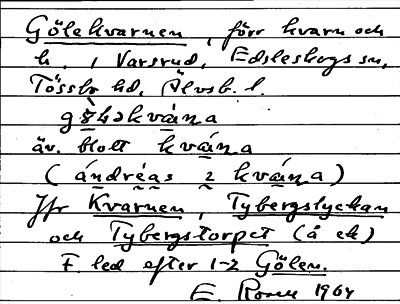 Gölekvarnen, förr kvarn och
h. i Varsrud, Edsleskogs sn,
Tössbo hd, Älvsb. l.
kvána
äv. blott kvána
(ándréas kvána)
Jfr Kvarnen, Tybergslyckan
och Tybergstorpet (å ek)
F. led efter 1-2 Gölen.
E. Rosen 1964